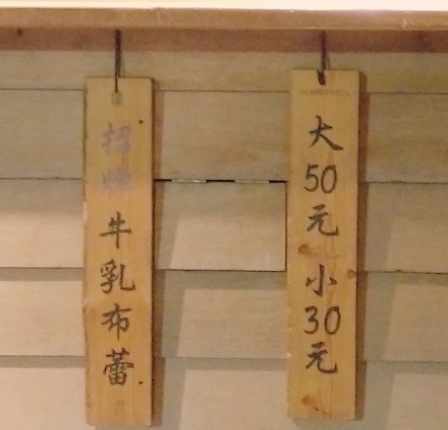 招牌牛乳布蕾
大50元 小30元